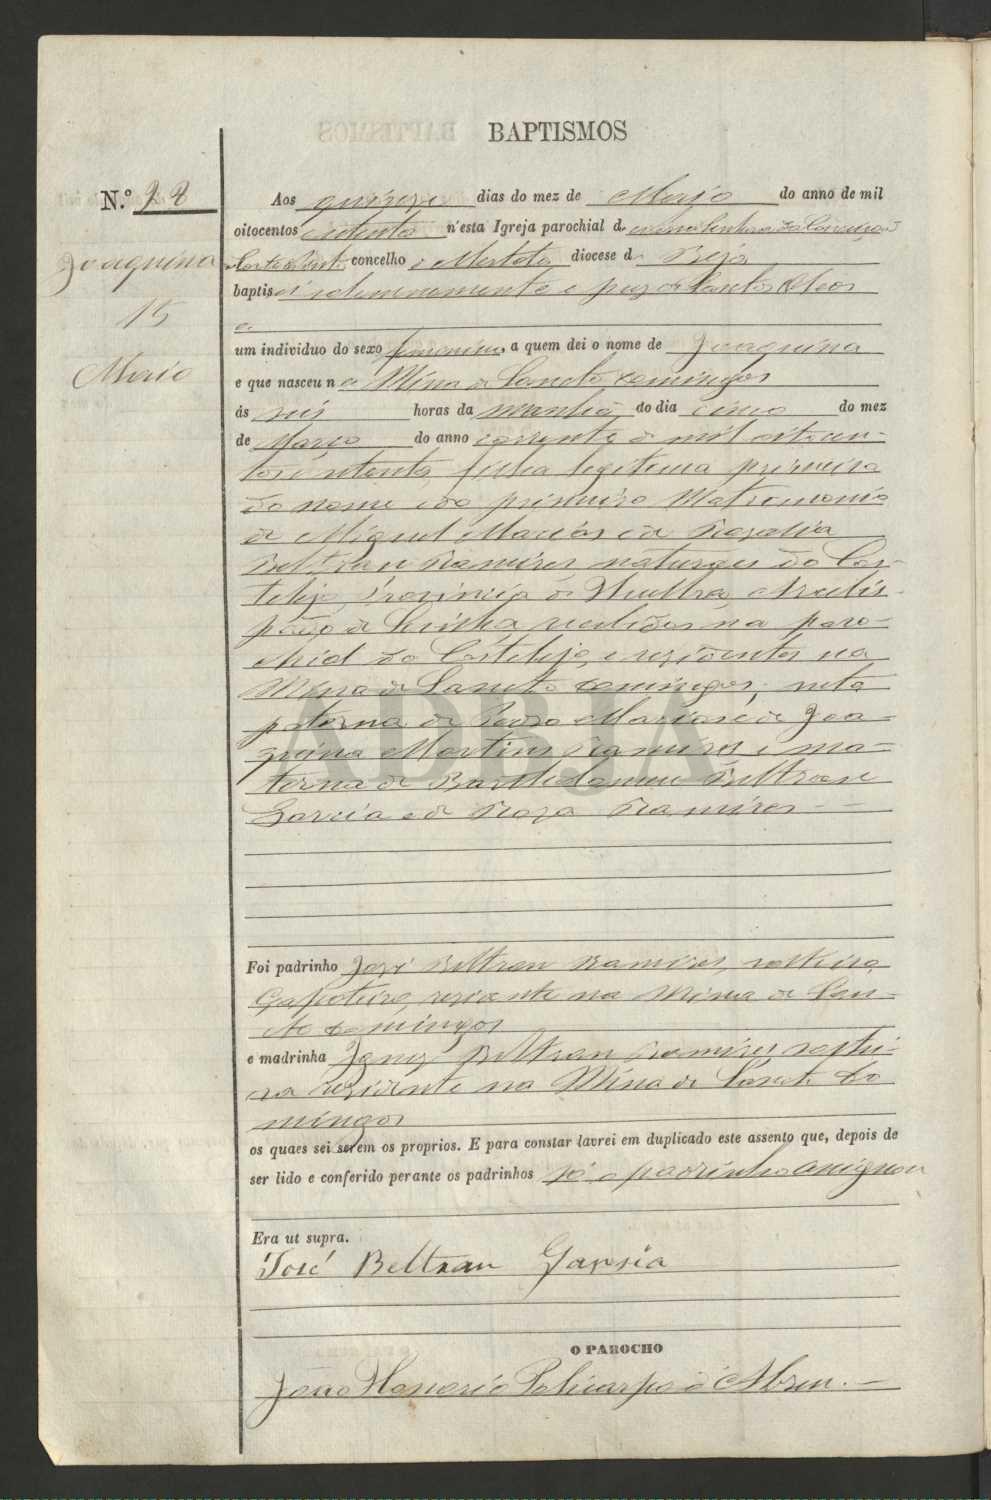 BAPTISMOS
N.º 78
Joaquina
15
Maio
Aos quinze dias do mez de Maio do anno de mil
oitocentos e oitenta n'esta Igreja parochial de Nossa Senhora da Conceição
Corte do Pinto concelho de Mertola diocese de Beja
baptisei solemnemente e puz os Sanctos Oleos
a
um individuo do sexo femenino, a quem dei o nome de Joaquina
e que nasceu na Mina de Sancto Domingos
ás seis horas da manhã do dia cinco do mez
de Março do anno corrente de mil oitocen-
tos e oitenta, filha legitima primeira
do nome e do primeiro Matremonio
de Miguel Macias e de Rozalia
Beltran Ramires naturaes do Cas-
telejo, Provincia de Huelba, Arcebis-
pado de Sevilha, recebidos na paro-
chial do Castelejo, e rezidentes na
Mina de Sancto Domingos; neta
paterna de Pedro Macias e de Joa-
quina Martins Ramires e ma-
terna de Barthelomeu Beltran e
Garcia e de Roza Ramires
Foi padrinho José Beltran Ramires, solteiro,
Çapateiro, rezidente na Mina de San-
cto Domingos
e madrinha Beltran Ramires, soltei-
ra rezidente na Mina de Sancto Do
mingos
os quaes sei serem os proprios. E para constar lavrei em duplicado este assento que, depois de
ser lido e conferido perante os padrinhos só o padrinho assignou
Era ut supra.
José Beltran Garsia
O PAROCHO
João Honorio Policarpo d'Abreu.
ADBJA